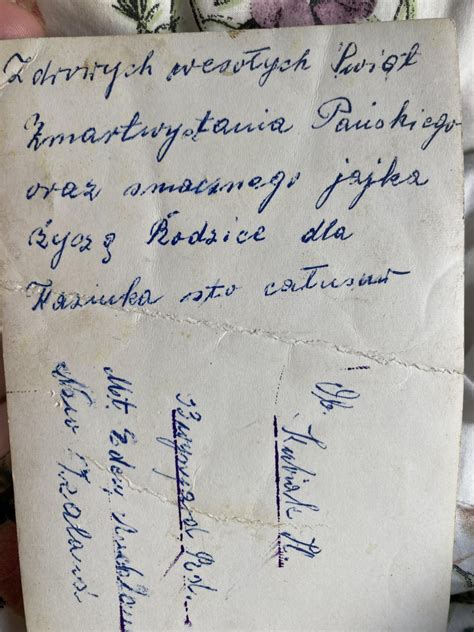 Zdrowych wesołych Świąt
Zmartwystania Pańskiego
oraz smacznego jajka
życzą Rodzice dla
Kaziuka sto całusuw
Ob. Kubiak
Rd.
Mt. Eden Auckland
New Zealand